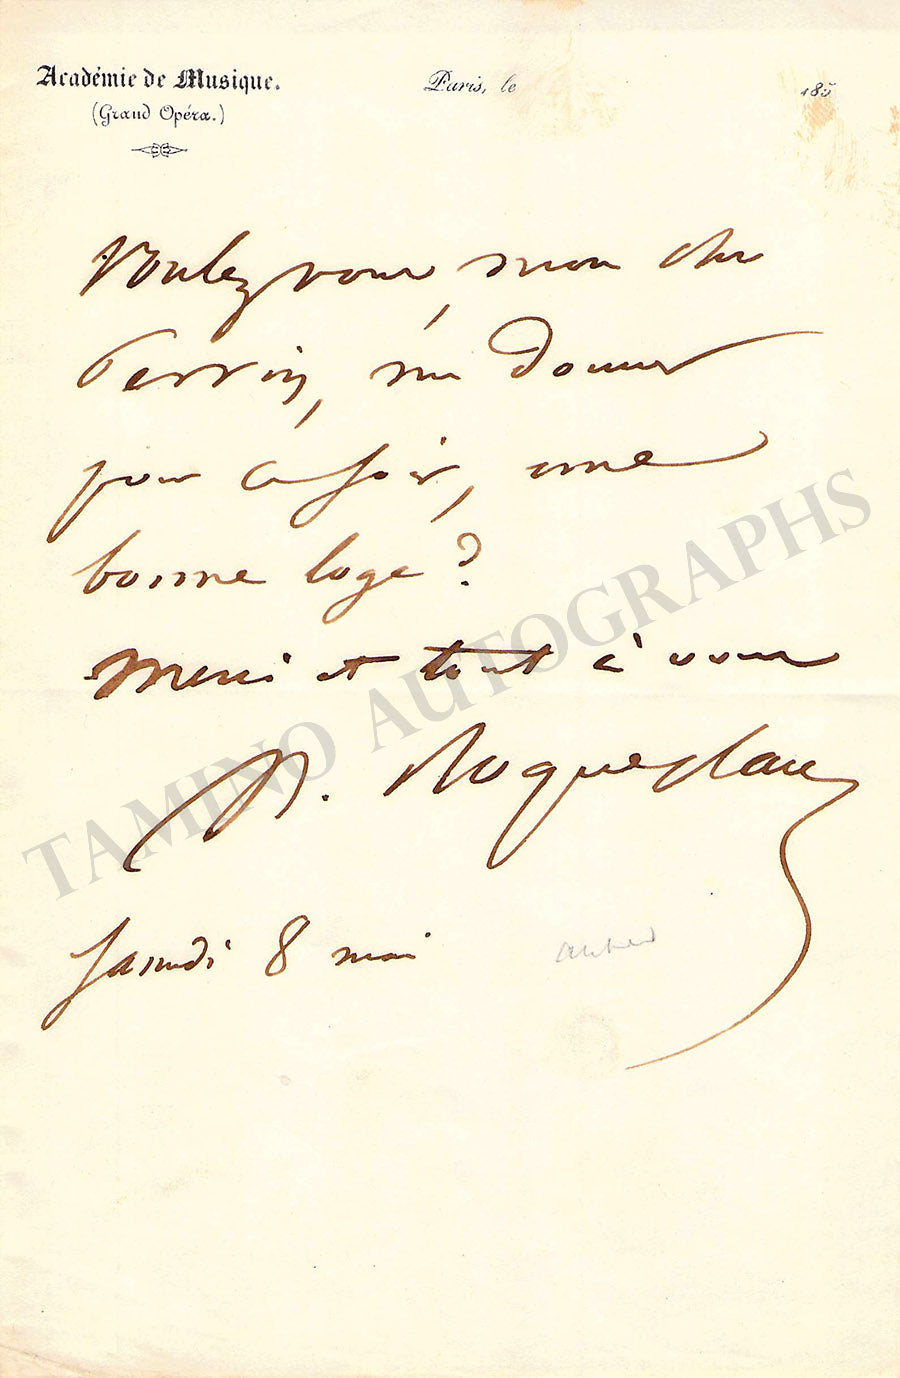 Académie de Musique.
(Grand Opéra.)
Paris, le 185
Voulez vous, mon cher
Perrin, me donner
pour ce soir, une
bonne loge ?
Merci et tout à vous
N. Roqueplan
Samedi 8 mai
TAMINO AUTOGRAPHS